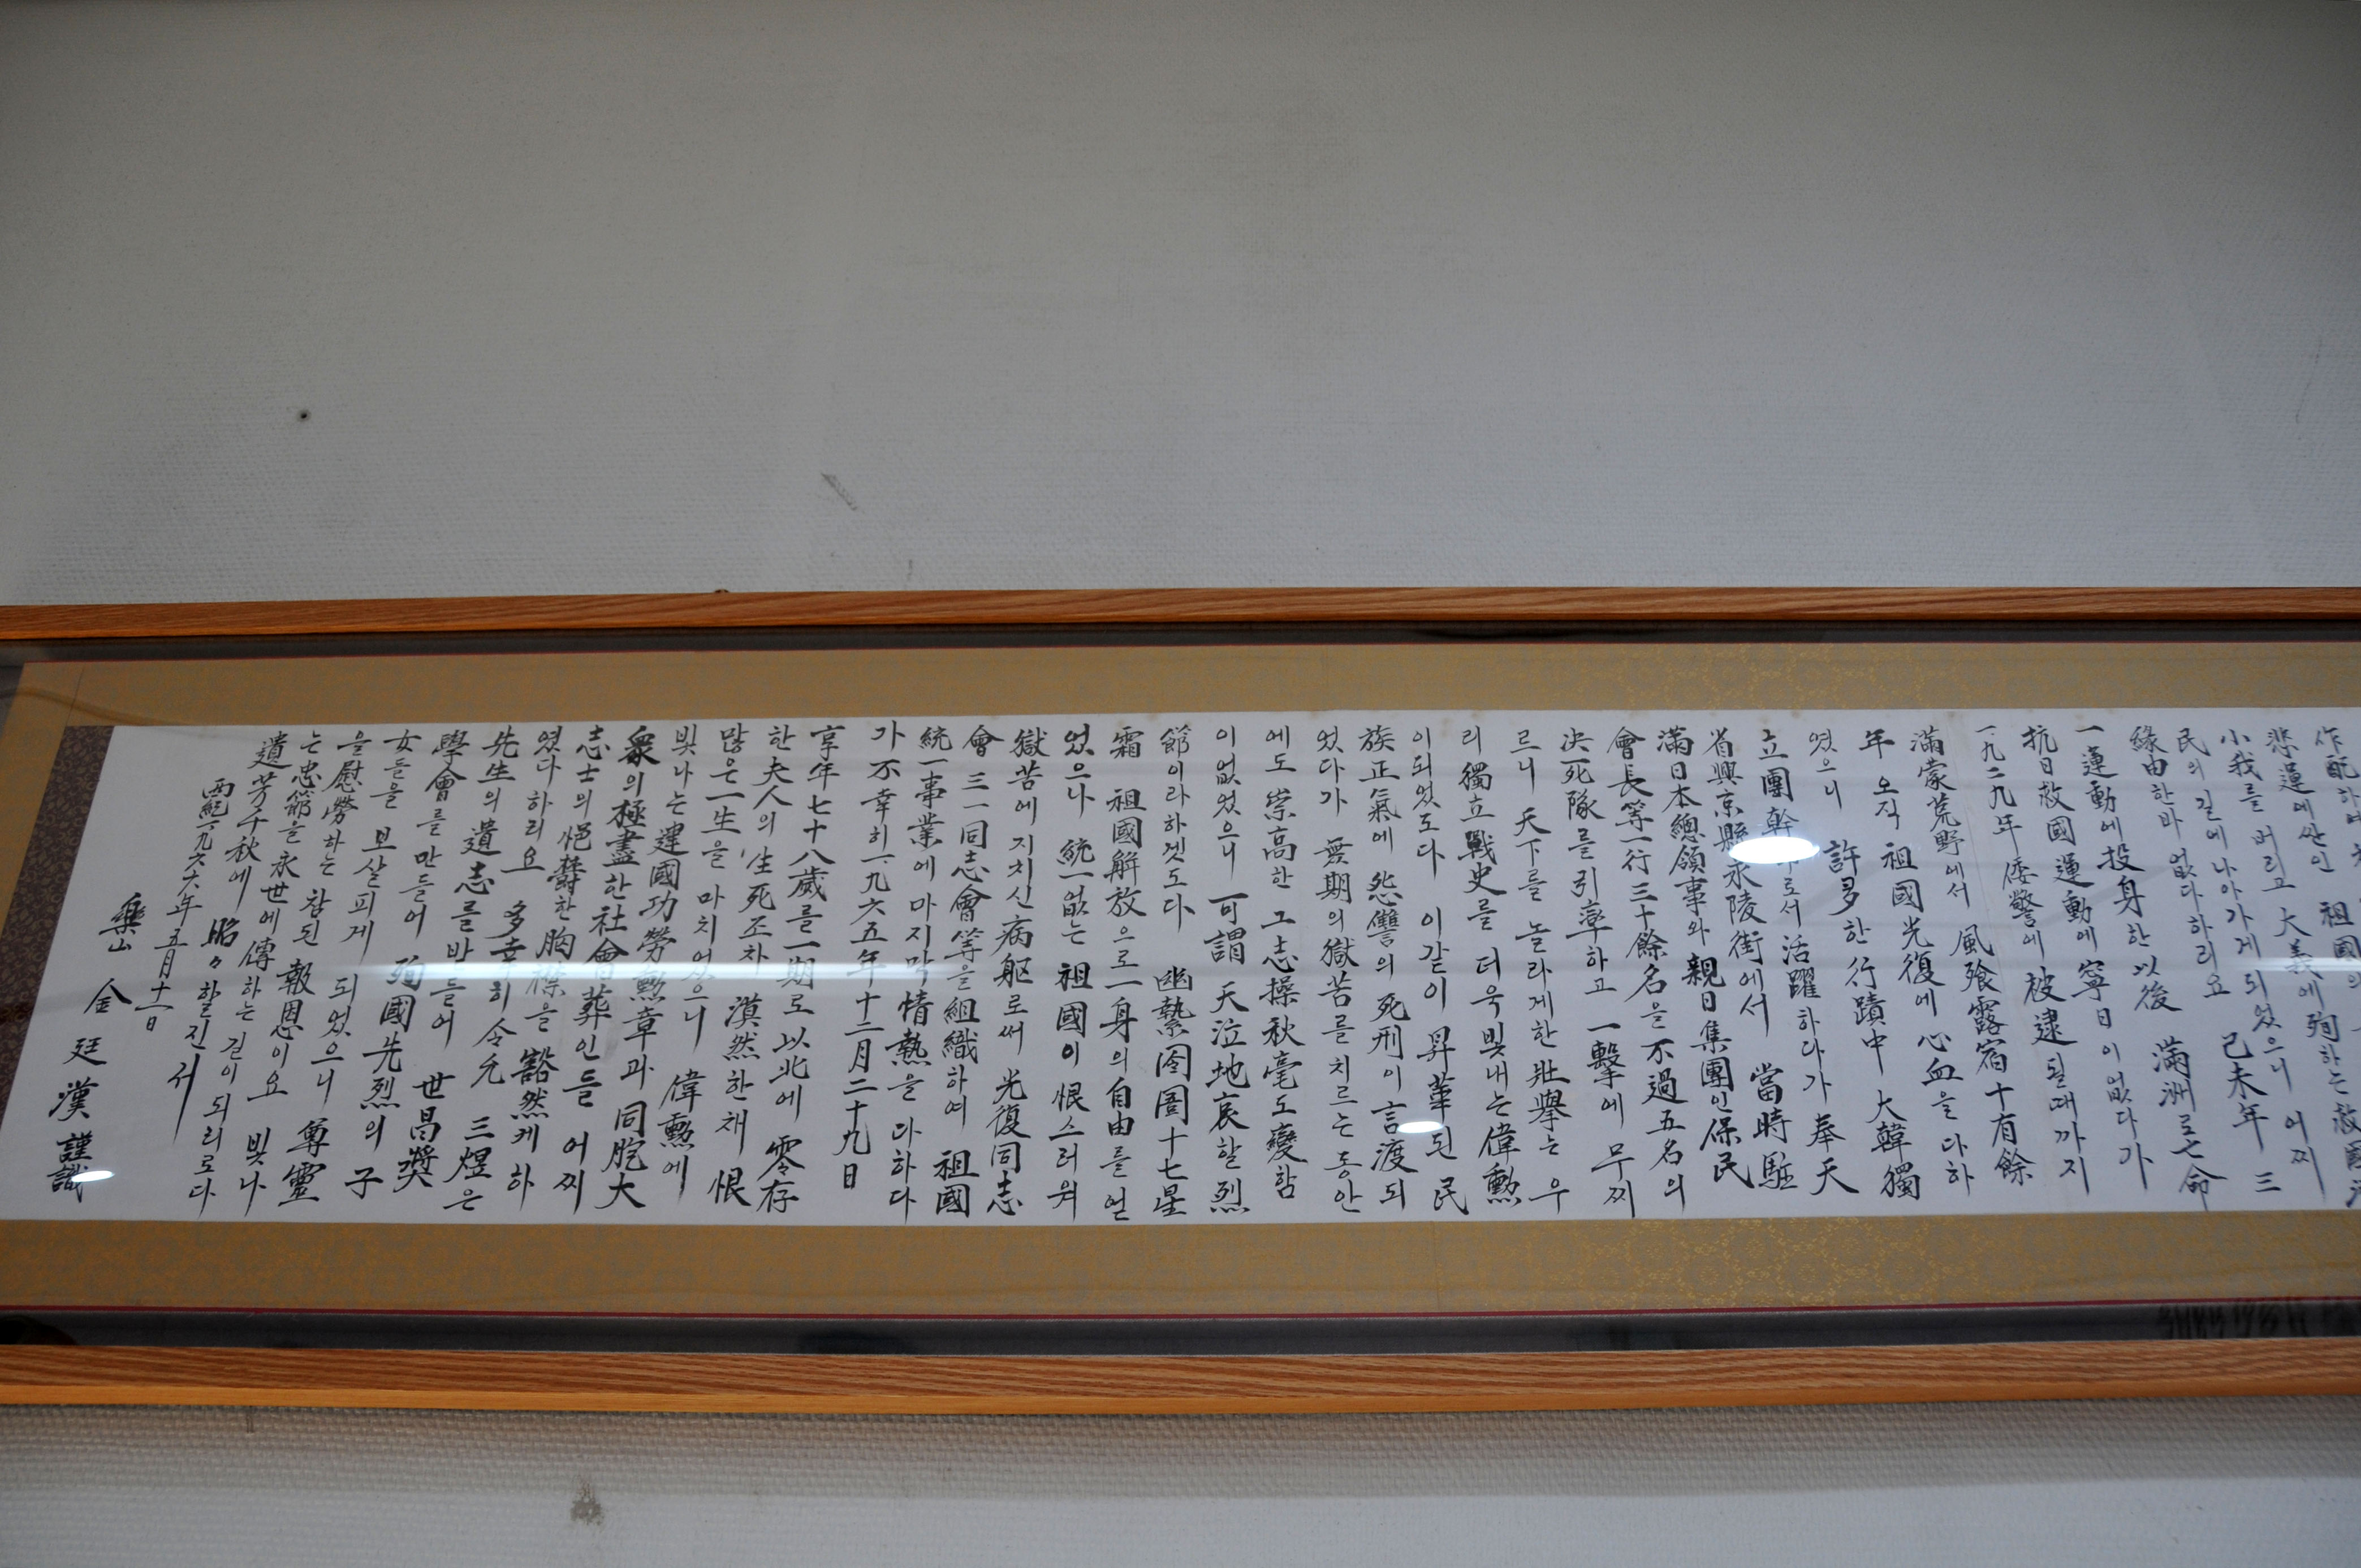 作配하여
悲運에싸인 祖國의
小我를 버리고 大義에 殉하는 救國
民의 길에 나아가게 되었으니 어찌
緣由한바 없다하리요 己未年 三
一運動에 投身한 以後 滿洲로 亡命
抗日救國運動에 寧日이 없다가
一九二九年 倭警에 被逮될때까지
滿蒙荒野에서 風飡露宿 十有餘
年 오직 祖國光復에 心血을 다하
였으니 許多한 行蹟中 大韓獨
立團 幹 로서 活躍하다가 奉天
省興京縣永陵街에서 當時 駐
滿日本總領事와 親日集團인 保民
會長等 一行三十餘名을 不過五名의
決死隊를 引率하고 一擊에 무찌
르니 天下를 놀라게한 壯擧는 우
리 獨立戰史를 더욱 빛내는 偉勳
이되었도다 이같이 昇華된 民
族正氣에 怨讐의 死刑이 言渡되
었다가 無期의 獄苦를 치르는 동안
에도 崇高한 그 志操 秋毫도 變함
이 없었으니 可謂 天泣地哀할 烈
節이라하겟도다 幽縶囹圄十七星
霜 祖國解放으로 一身의 自由를 얻
었으나 統一없는 祖國이 恨스러워
獄苦에 지치신 病軀로써 光復同志
會 三一同志會等을 組織하여 祖國
統一事業에 마지막 情熱을 다하다
가 不幸히 一九六五年十二月二十九日
享年七十八歲를 一期로 以北에 零存
한 夫人의 生死조차 漠然한채 恨
많은 一生을 마치었으니 偉勳에
빛나는 建國功勞勳章과 同胞大
衆의 極盡한 社會葬인들 어찌
志士의 悒鬱한 胸襟을 豁然케하
였다 하리요 多幸히 令允 三煜은
先生의 遺志를 받들어 世昌奬
學會를 만들어 殉國先烈의 子
女들을 보살피게 되었으니 尊靈
을 慰勞하는 참된 報恩이요 빛나
는 忠節을 永世에 傳하는 길이 되리로다
遺芳千秋에 昭々할진저
西紀一九六六年五月十一日
樂山 金廷漢 謹識